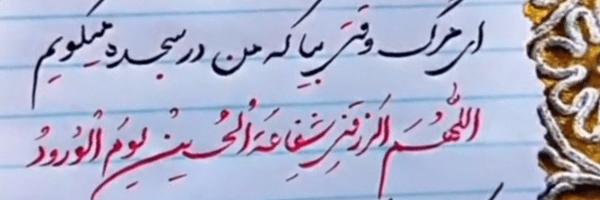 ای مرگ وقتی بیا که من در سجده میگویم
اللّهُمَ الرزقنِی شَفاعَةَ الْحُسینْ یومَ الْوُرودْ